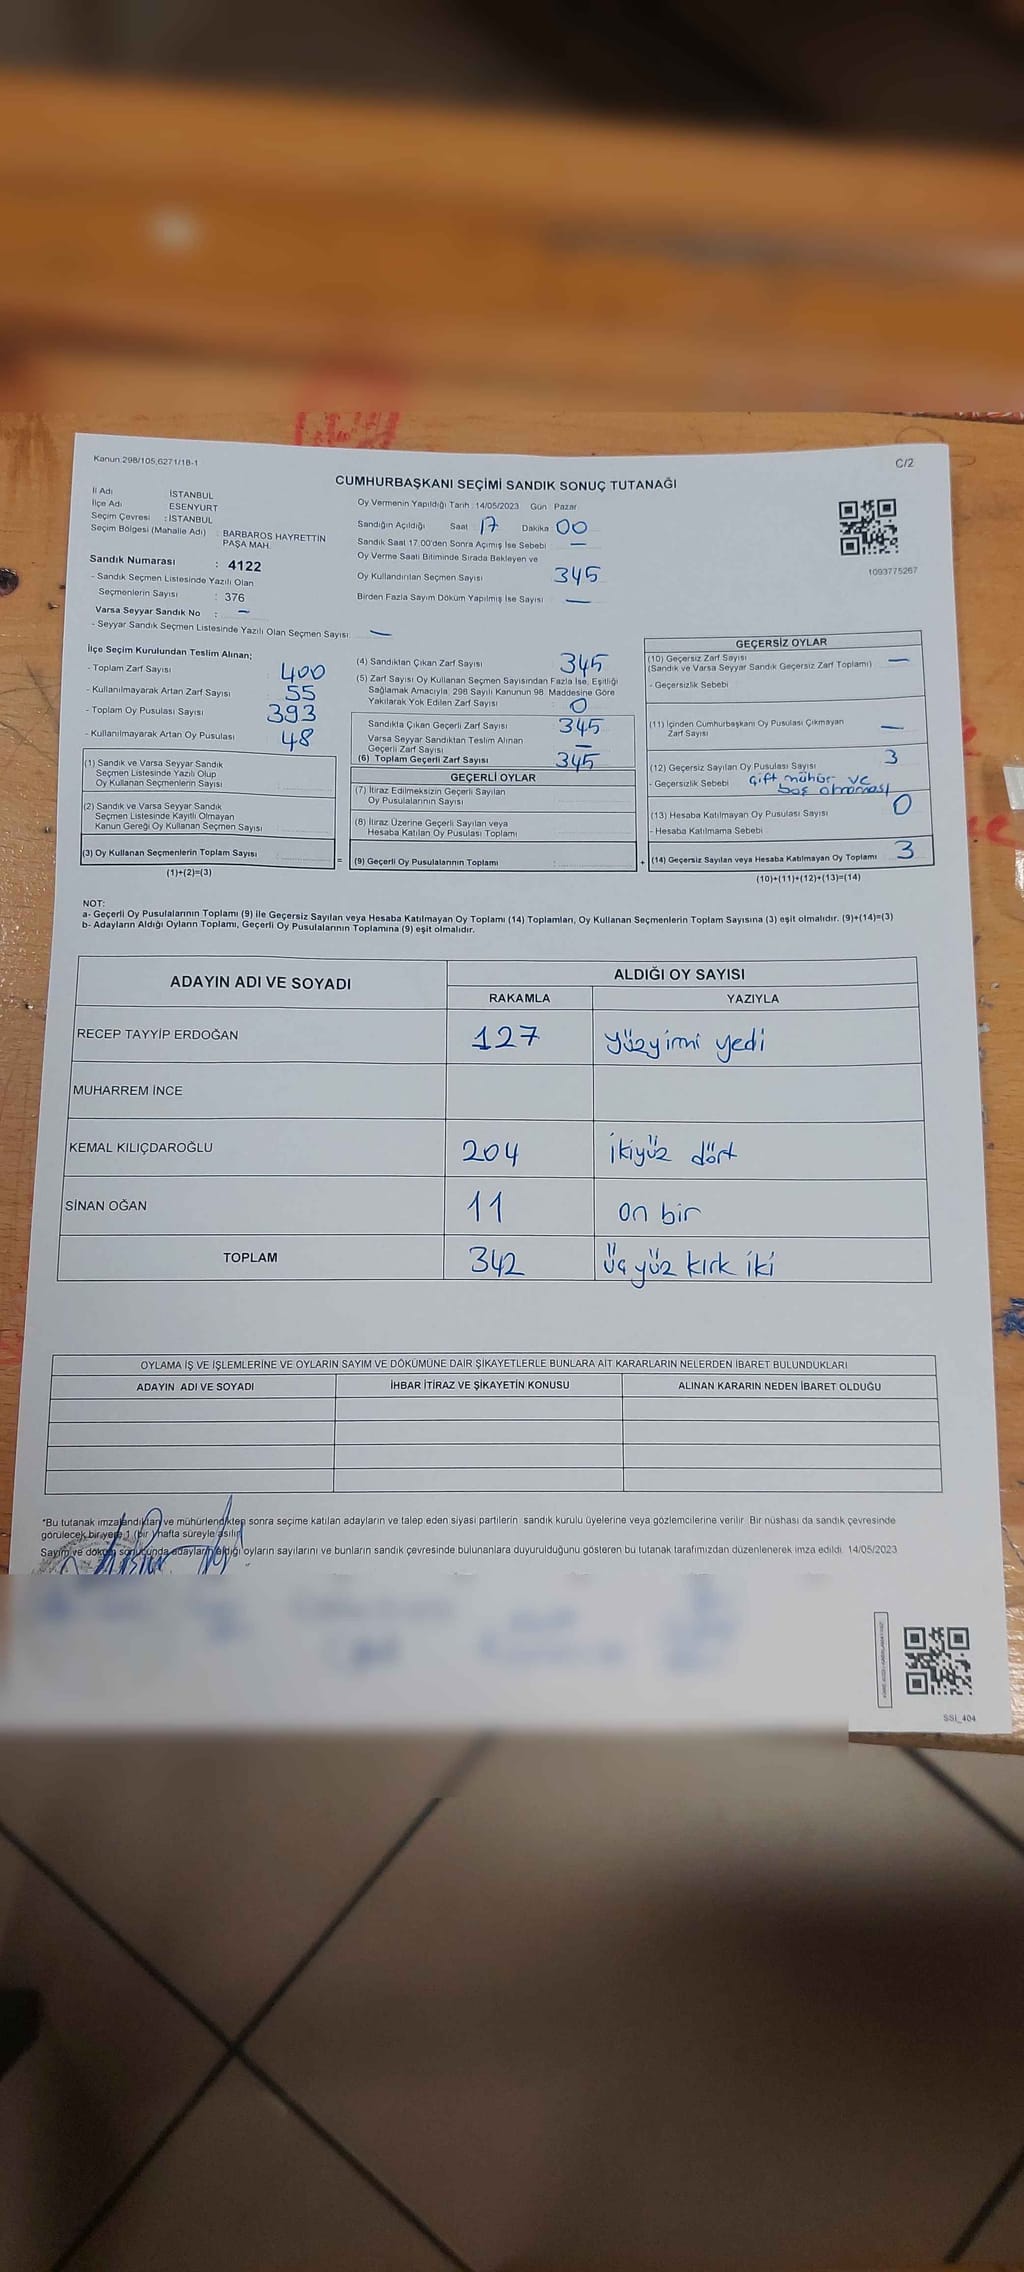 Kanun 298/105,6271/18-1
C/2
CUMHURBAŞKANI SEÇİMİ SANDIK SONUÇ TUTANAĞI
İl Adı İSTANBUL
İlçe Adı ESENYURT
Seçim Çevresi : İSTANBUL
Seçim Bölgesi (Mahalle Adı) BARBAROS HAYRETTİN
PAŞA MAH.
Sandık Numarası : 4122
- Sandık Seçmen Listesinde Yazılı Olan
Seçmenlerin Sayısı : 376
Varsa Seyyar Sandık No : –
- Seyyar Sandık Seçmen Listesinde Yazılı Olan Seçmen Sayısı: –
Oy Vermenin Yapıldığı Tarih : 14/05/2023 Gün Pazar
Sandığın Açıldığı Saat 17 Dakika 00
Sandık Saat 17.00'den Sonra Açımış İse Sebebi –
Oy Verme Saati Bitiminde Sırada Bekleyen ve
Oy Kullandırılan Seçmen Sayısı 345
Birden Fazla Sayım Döküm Yapılmış İse Sayısı –
1093775267
İlçe Seçim Kurulundan Teslim Alınan;
- Toplam Zarf Sayısı 400
- Kullanılmayarak Artan Zarf Sayısı 55
- Toplam Oy Pusulası Sayısı 393
- Kullanılmayarak Artan Oy Pusulası 48
(1) Sandık ve Varsa Seyyar Sandık
Seçmen Listesinde Yazılı Olup
Oy Kullanan Seçmenlerin Sayısı
(2) Sandık ve Varsa Seyyar Sandık
Seçmen Listesinde Kayıtlı Olmayan
Kanun Gereği Oy Kullanan Seçmen Sayısı
(3) Oy Kullanan Seçmenlerin Toplam Sayısı :
(1)+(2)=(3)
(4) Sandıktan Çıkan Zarf Sayısı 345
(5) Zarf Sayısı Oy Kullanan Seçmen Sayısından Fazla İse, Eşitliği
Sağlamak Amacıyla, 298 Sayılı Kanunun 98. Maddesine Göre
Yakılarak Yok Edilen Zarf Sayısı 0
Sandıkta Çıkan Geçerli Zarf Sayısı 345
Varsa Seyyar Sandıktan Teslim Alınan
Geçerli Zarf Sayısı –
(6) Toplam Geçerli Zarf Sayısı 345
GEÇERLİ OYLAR
(7) İtiraz Edilmeksizin Geçerli Sayılan
Oy Pusulalarının Sayısı
(8) İtiraz Üzerine Geçerli Sayılan veya
Hesaba Katılan Oy Pusulası Toplamı
= (9) Geçerli Oy Pusulalarının Toplamı :
GEÇERSİZ OYLAR
(10) Geçersiz Zarf Sayısı
(Sandık ve Varsa Seyyar Sandık Geçersiz Zarf Toplamı) –
- Geçersizlik Sebebi
(11) İçinden Cumhurbaşkanı Oy Pusulası Çıkmayan
Zarf Sayısı –
(12) Geçersiz Sayılan Oy Pusulası Sayısı 3
- Geçersizlik Sebebi Çift mühür ve
boş olmaması
(13) Hesaba Katılmayan Oy Pusulası Sayısı 0
- Hesaba Katılmama Sebebi
+ (14) Geçersiz Sayılan veya Hesaba Katılmayan Oy Toplamı 3
(10)+(11)+(12)+(13)=(14)
NOT:
a- Geçerli Oy Pusulalarının Toplamı (9) ile Geçersiz Sayılan veya Hesaba Katılmayan Oy Toplamı (14) Toplamları, Oy Kullanan Seçmenlerin Toplam Sayısına (3) eşit olmalıdır. (9)+(14)=(3)
b- Adayların Aldığı Oyların Toplamı, Geçerli Oy Pusulalarının Toplamına (9) eşit olmalıdır.
ADAYIN ADI VE SOYADI
ALDIĞI OY SAYISI
RAKAMLA YAZIYLA
RECEP TAYYİP ERDOĞAN 127 yüzyirmi yedi
MUHARREM İNCE
KEMAL KILIÇDAROĞLU 204 ikiyüz dört
SİNAN OĞAN 11 on bir
TOPLAM 342 üç yüz kırk iki
OYLAMA İŞ VE İŞLEMLERİNE VE OYLARIN SAYIM VE DÖKÜMÜNE DAİR ŞİKAYETLERLE BUNLARA AİT KARARLARIN NELERDEN İBARET BULUNDUKLARI
ADAYIN ADI VE SOYADI İHBAR İTİRAZ VE ŞİKAYETİN KONUSU ALINAN KARARIN NEDEN İBARET OLDUĞU
*Bu tutanak imzalandıktan ve mühürlendikten sonra seçime katılan adayların ve talep eden siyasi partilerin sandık kurulu üyelerine veya gözlemcilerine verilir. Bir nüshası da sandık çevresinde
görülecek bir yere 1 (bir) hafta süreyle asılır
Sayım ve döküm sonucunda adayların aldığı oyların sayılarını ve bunların sandık çevresinde bulunanlara duyurulduğunu gösteren bu tutanak tarafımızdan düzenlenerek imza edildi. 14/05/2023
SSİ_404